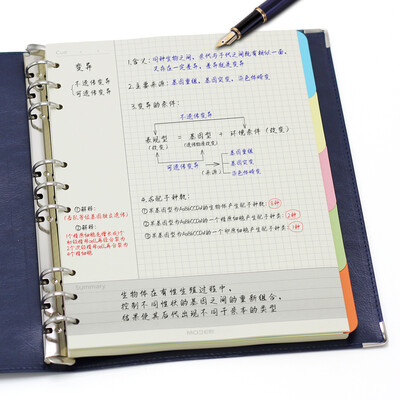 变异
不遗传变异
可遗传变异
1.含义：同种生物之间，亲代与子代之间既有相似一面，
又存在一定差异，差异就是变异
2.主要来源：基因重组，基因突变，染色体畸变
3.变异的条件：
不遗传变异
表现型 = 基因型 + 环境条件（改变）
（改变）（遗传物质改变）
可遗传变异
（来源）
基因重组
基因突变
染色体畸变
4.求配子种数：
①某基因型为AaBbCCDd的生物体产生配子种数：8种
②某基因型为AaBbCCDd的一个精原细胞产生配子种类：2种
③某基因型为AaBbCCDd的一个卵原细胞产生配子种类：1种
①解释：
（各队等位基因独立遗传）
②解释：
1个精原细胞
4个精细胞
Summary
生物体在有性生殖过程中，
控制不同性状的基因之间的重新组合，
结果使其后代出现不同于亲本的类型